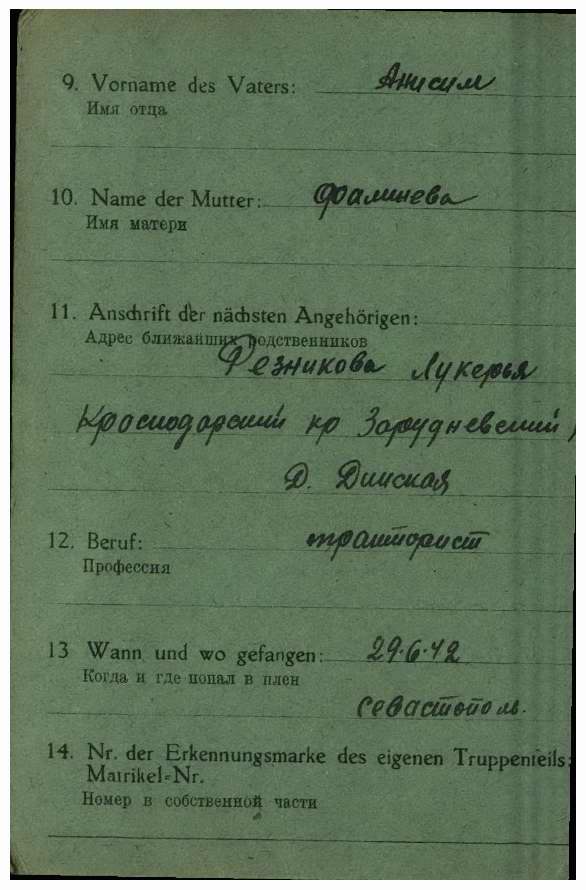 9. Vorname des Vaters: Анисим
Имя отца
10. Name der Mutter: Фалинева
Имя матери
11. Anschrift der nächsten Angehörigen:
Адрес ближайших родственников
Резникова Лукерья
Краснодарский кр Зарудневский
Д. Динская
12. Beruf: тракторист
Профессия
13 Wann und wo gefangen: 29.6.42
Когда и где попал в плен
Севастополь.
14. Nr. der Erkennungsmarke des eigenen Truppenteils:
Matrikel-Nr.
Номер в собственной части